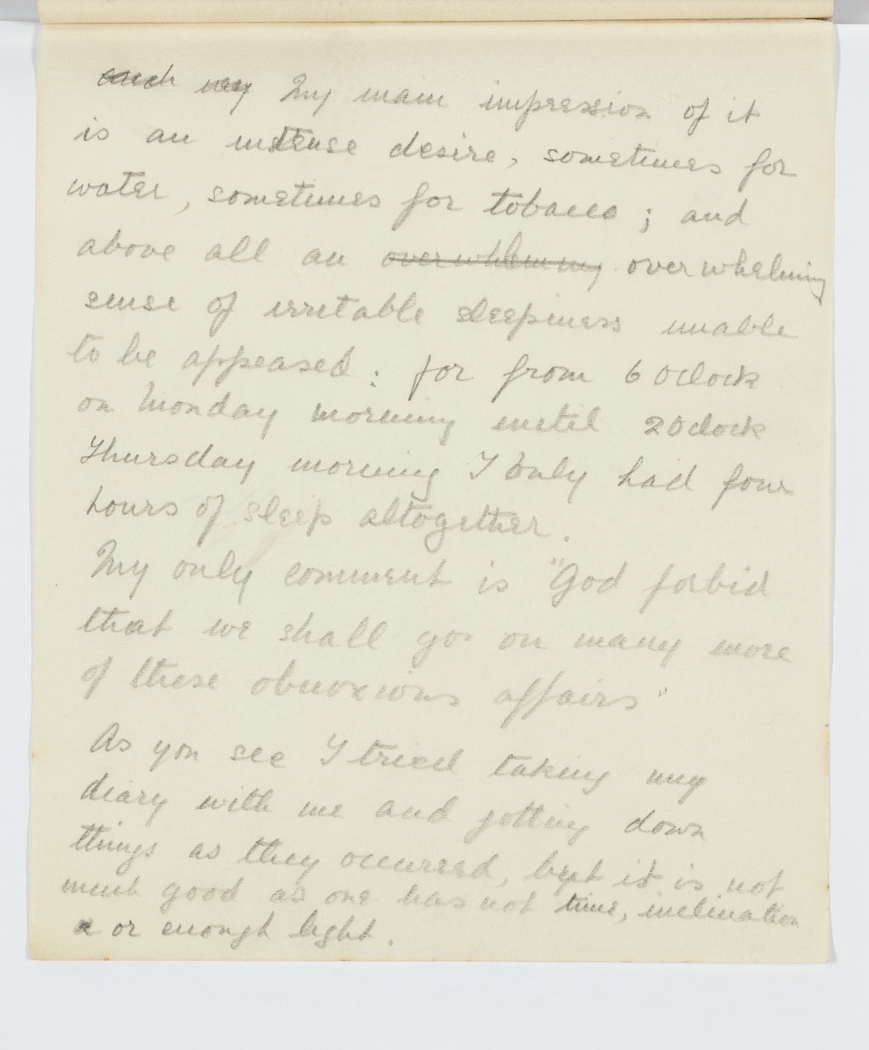 each way My main impression of it
is an intense desire, sometimes for
water, sometimes for tobacco ; and
above all an overwhelming overwhelming
sense of irritable sleepiness unable
to be appeased : for from 6 oclock
on Monday morning until 2 oclock
Thursday morning I only had four
hours of sleep altogether.
My only comment is "God forbid
that we shall go on many more
of these obnoxious affairs"
As you see I tried taking my
diary with me and jotting down
things as they occurred, but it is not
much good as one has not time, inclination
or enough light.